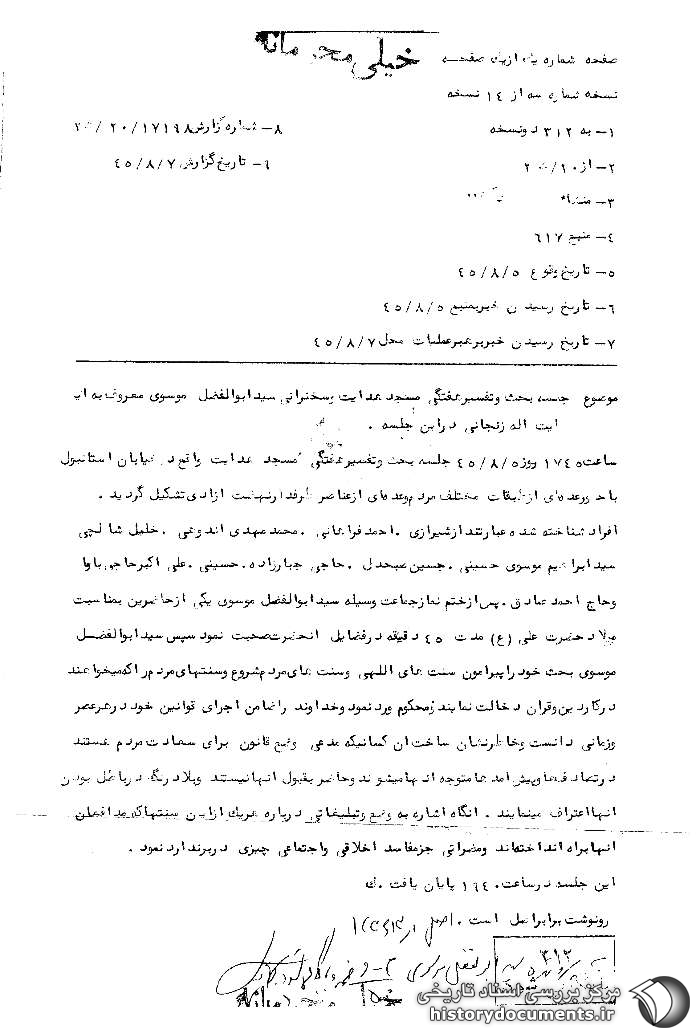 خیلی محرمانه
صفحه شماره یک ازیک صفحه
نسخه شماره سه از ١٤ نسخه
١- به ٣١٢ دونسخه
٨- شماره گزارش ١٧١٩٨/٢٠
٢- از ٢٠
٩- تاریخ گزارش ٤٥/٨/٧
٣- منشاء
٤- منبع ٦١٧
٥- تاریخ وقوع ٤٥/٨/٥
٦- تاریخ رسیدن خبربمنبع ٤٥/٨/٥
٧- تاریخ رسیدن خبربرهبرعملیات محل ٤٥/٨/٧
موضوع جلسه بحث وتفسیرهفتگی مسجد هدایت وسخنرانی سیدابوالفضل موسوی معروف به
ایت اله زنجانی دراین جلسه .
ساعت ١٧٤٥ روز ٤٥/٨/٥ جلسه بحث وتفسیرهفتگی مسجد هدایت واقع در خیابان استانبول
باحضورعده‌ای ازطبقات مختلف مردم وعده‌ای ازعناصر طرفدارنهضت ازادی تشکیل گردید .
افراد شناخته شده عبارتند ازشیرازی . احمد فراهانی . محمد مهدی اندوهی . خلیل شالچی
سیدابراهیم موسوی حسینی . حسین صبحدل . حاجی جبارزاده . حسینی . علی اکبرحاجی بابا
وحاج احمد صادق . پس ازختم نمازجماعت وسیله سیدابوالفضل موسوی یکی ازحاضرین بمناسبت
میلاد حضرت علی (ع) مدت ٤٥ دقیقه درفضایل انحضرت صحبت نمود سپس سیدابوالفضل
موسوی بحث خود راپیرامون سنت های اللهی وسنت های مردم شروع وسنتهای مردم راکه میخواهند
درکاردین وقران دخالت نمایند محکوم ورد نمود وخداوند راضامن اجرای قوانین خود درهرعصر
وزمانی دانست وخاطرنشان ساخت ان کسانیکه مدعی وضع قانون برای سعادت مردم هستند
درتضادفها وپیش امدها متوجه انها میشوند وحاضربقبول انهانیستند وبلادرنگ درباطل بودن
انهااعتراف مینمایند . انگاه اشاره به وضع وتبلیغاتی درباره هریک ازاین سنتهاکه مدافعان
انهابراه انداخته‌اند ومضراتی جزمفاسد اخلاقی واجتماعی چیزی دربرندارد نمود .
این جلسه درساعت پایان یافت . ك
رونوشت برابراصل است . اصل در
٣١٢
مرکز بررسی اسناد تاریخی
historydocuments.ir